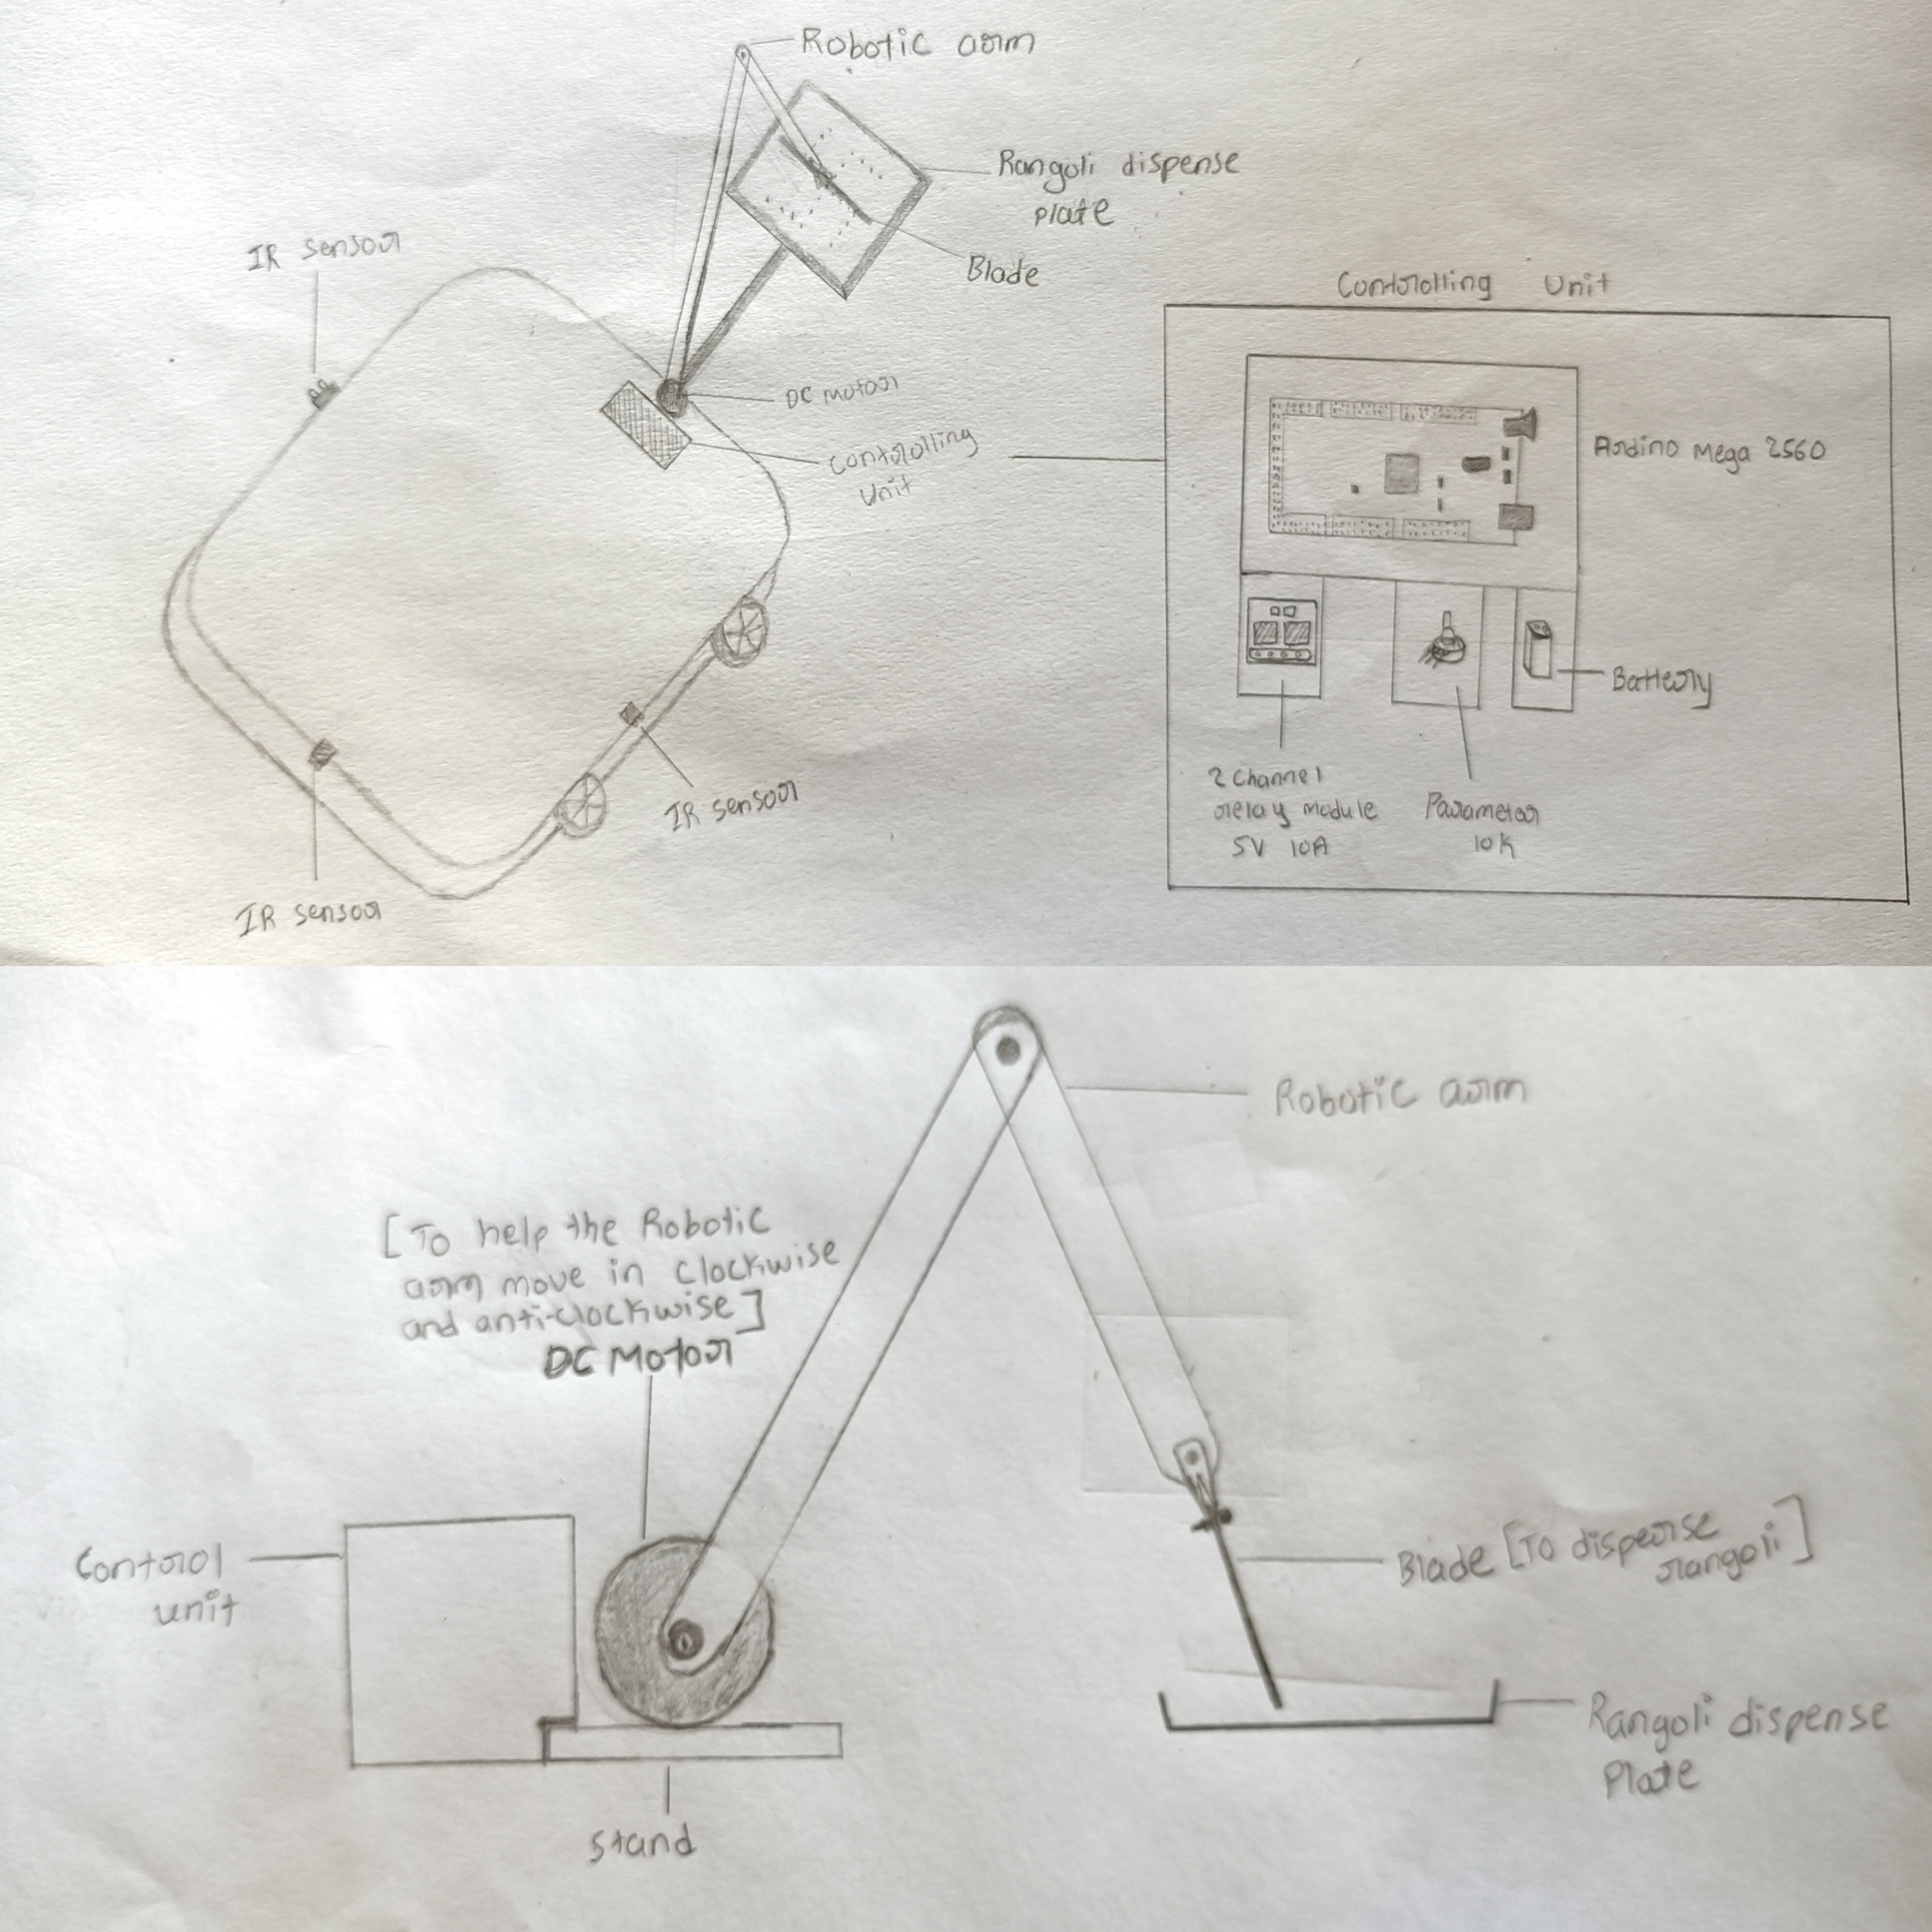 Robotic arm
Rangoli dispense
plate
Blade
IR sensor
DC motor
Controlling
Unit
IR sensor
IR sensor
Controlling Unit
Ardino Mega 2560
Battery
2 Channel
relay module
5V 10A
Parameter
10K
Robotic arm
[To help the Robotic
arm move in clockwise
and anti-clockwise]
DC Motor
Control
unit
Blade [To disperse
rangoli]
Rangoli dispense
Plate
stand